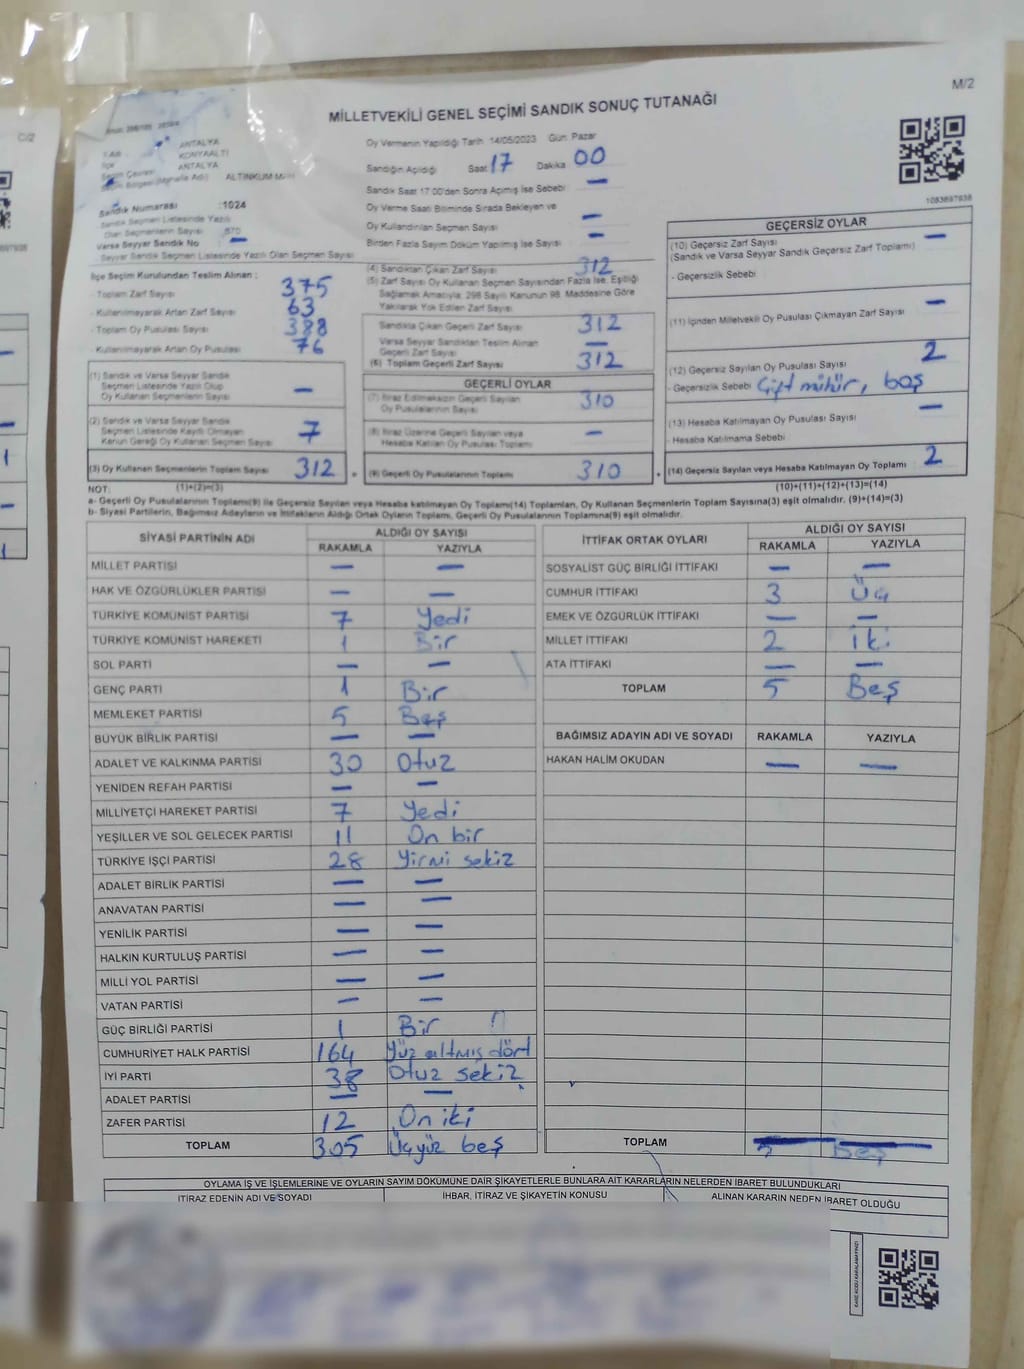 M/2
C/2
MİLLETVEKİLİ GENEL SEÇİMİ SANDIK SONUÇ TUTANAĞI
ANTALYA
KONYAALTI
ANTALYA
Seçim Çevresi (Mahalle Adı) ALTINKUM MAH
Sandık Numarası :1024
Sandık Seçmen Listesinde Yazılı
Olan Seçmenlerin Sayısı
Varsa Seyyar Sandık No —
Seyyar Sandık Seçmen Listesinde Yazılı Olan Seçmen Sayısı
Oy Vermenin Yapıldığı Tarih 14/05/2023 Gün: Pazar
Sandığın Açıldığı Saat 17 Dakika 00
Sandık Saat 17:00'den Sonra Açılmış İse Sebebi —
Oy Verme Saati Bitiminde Sırada Bekleyen ve
Oy Kullandırılan Seçmen Sayısı —
Birden Fazla Sayım Döküm Yapılmış İse Sayısı —
1083697938
İlçe Seçim Kurulundan Teslim Alınan :
- Toplam Zarf Sayısı 375
- Kullanılmayarak Artan Zarf Sayısı 63
- Toplam Oy Pusulası Sayısı 388
- Kullanılmayarak Artan Oy Pusulası 76
(1) Sandık ve Varsa Seyyar Sandık
Seçmen Listesinde Yazılı Olup
Oy Kullanan Seçmenlerin Sayısı —
(2) Sandık ve Varsa Seyyar Sandık
Seçmen Listesinde Kayıtlı Olmayan
Kanun Gereği Oy Kullanan Seçmen Sayısı 7
(3) Oy Kullanan Seçmenlerin Toplam Sayısı 312
(1)+(2)=(3)
(4) Sandıktan Çıkan Zarf Sayısı 312
(5) Zarf Sayısı Oy Kullanan Seçmen Sayısından Fazla İse, Eşitliği
Sağlamak Amacıyla, 298 Sayılı Kanunun 98. Maddesine Göre
Yakılarak Yok Edilen Zarf Sayısı
Sandıkta Çıkan Geçerli Zarf Sayısı 312
Varsa Seyyar Sandıktan Teslim Alınan
Geçerli Zarf Sayısı —
(6) Toplam Geçerli Zarf Sayısı 312
GEÇERLİ OYLAR
(7) İtiraz Edilmeksizin Geçerli Sayılan
Oy Pusulalarının Sayısı 310
(8) İtiraz Üzerine Geçerli Sayılan veya
Hesaba Katılan Oy Pusulası Toplamı —
(9) Geçerli Oy Pusulalarının Toplamı 310
GEÇERSİZ OYLAR
(10) Geçersiz Zarf Sayısı —
(Sandık ve Varsa Seyyar Sandık Geçersiz Zarf Toplamı)
- Geçersizlik Sebebi
(11) İçinden Milletvekili Oy Pusulası Çıkmayan Zarf Sayısı —
(12) Geçersiz Sayılan Oy Pusulası Sayısı 2
- Geçersizlik Sebebi Çift mühür, boş
(13) Hesaba Katılmayan Oy Pusulası Sayısı —
- Hesaba Katılmama Sebebi
(14) Geçersiz Sayılan veya Hesaba Katılmayan Oy Toplamı 2
(10)+(11)+(12)+(13)=(14)
NOT:
a- Geçerli Oy Pusulalarının Toplamı(9) ile Geçersiz Sayılan veya Hesaba katılmayan Oy Toplamı(14) Toplamları, Oy Kullanan Seçmenlerin Toplam Sayısına(3) eşit olmalıdır. (9)+(14)=(3)
b- Siyasi Partilerin, Bağımsız Adayların ve İttifakların Aldığı Ortak Oyların Toplamı, Geçerli Oy Pusulalarının Toplamına(9) eşit olmalıdır.
SİYASİ PARTİNİN ADI ALDIĞI OY SAYISI
RAKAMLA YAZIYLA
MİLLET PARTİSİ — —
HAK VE ÖZGÜRLÜKLER PARTİSİ — —
TÜRKİYE KOMÜNİST PARTİSİ 7 Yedi
TÜRKİYE KOMÜNİST HAREKETİ 1 Bir
SOL PARTİ — —
GENÇ PARTİ 1 Bir
MEMLEKET PARTİSİ 5 Beş
BÜYÜK BİRLİK PARTİSİ — —
ADALET VE KALKINMA PARTİSİ 30 Otuz
YENİDEN REFAH PARTİSİ — —
MİLLİYETÇİ HAREKET PARTİSİ 7 Yedi
YEŞİLLER VE SOL GELECEK PARTİSİ 11 On bir
TÜRKİYE İŞÇİ PARTİSİ 28 Yirmi sekiz
ADALET BİRLİK PARTİSİ — —
ANAVATAN PARTİSİ — —
YENİLİK PARTİSİ — —
HALKIN KURTULUŞ PARTİSİ — —
MİLLİ YOL PARTİSİ — —
VATAN PARTİSİ — —
GÜÇ BİRLİĞİ PARTİSİ 1 Bir
CUMHURİYET HALK PARTİSİ 164 Yüz altmış dört
İYİ PARTİ 38 Otuz sekiz
ADALET PARTİSİ — —
ZAFER PARTİSİ 12 On iki
TOPLAM 305 Üçyüz beş
İTTİFAK ORTAK OYLARI ALDIĞI OY SAYISI
RAKAMLA YAZIYLA
SOSYALİST GÜÇ BİRLİĞİ İTTİFAKI — —
CUMHUR İTTİFAKI 3 Üç
EMEK VE ÖZGÜRLÜK İTTİFAKI — —
MİLLET İTTİFAKI 2 İki
ATA İTTİFAKI — —
TOPLAM 5 Beş
BAĞIMSIZ ADAYIN ADI VE SOYADI RAKAMLA YAZIYLA
HAKAN HALİM OKUDAN — —
TOPLAM 5 Beş
OYLAMA İŞ VE İŞLEMLERİNE VE OYLARIN SAYIM DÖKÜMÜNE DAİR ŞİKAYETLERLE BUNLARA AİT KARARLARIN NELERDEN İBARET BULUNDUKLARI
İTİRAZ EDENİN ADI VE SOYADI İHBAR, İTİRAZ VE ŞİKAYETİN KONUSU ALINAN KARARIN NEDEN İBARET OLDUĞU